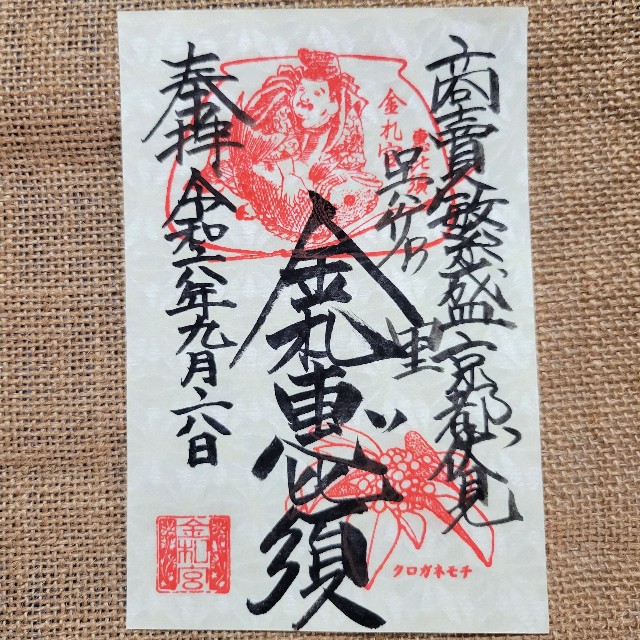 商賣繁盛 京都伏見
呉竹の里
金札宮
恵比須
金札恵比須
奉拝
令和六年九月六日
クロガネモチ
金札宮